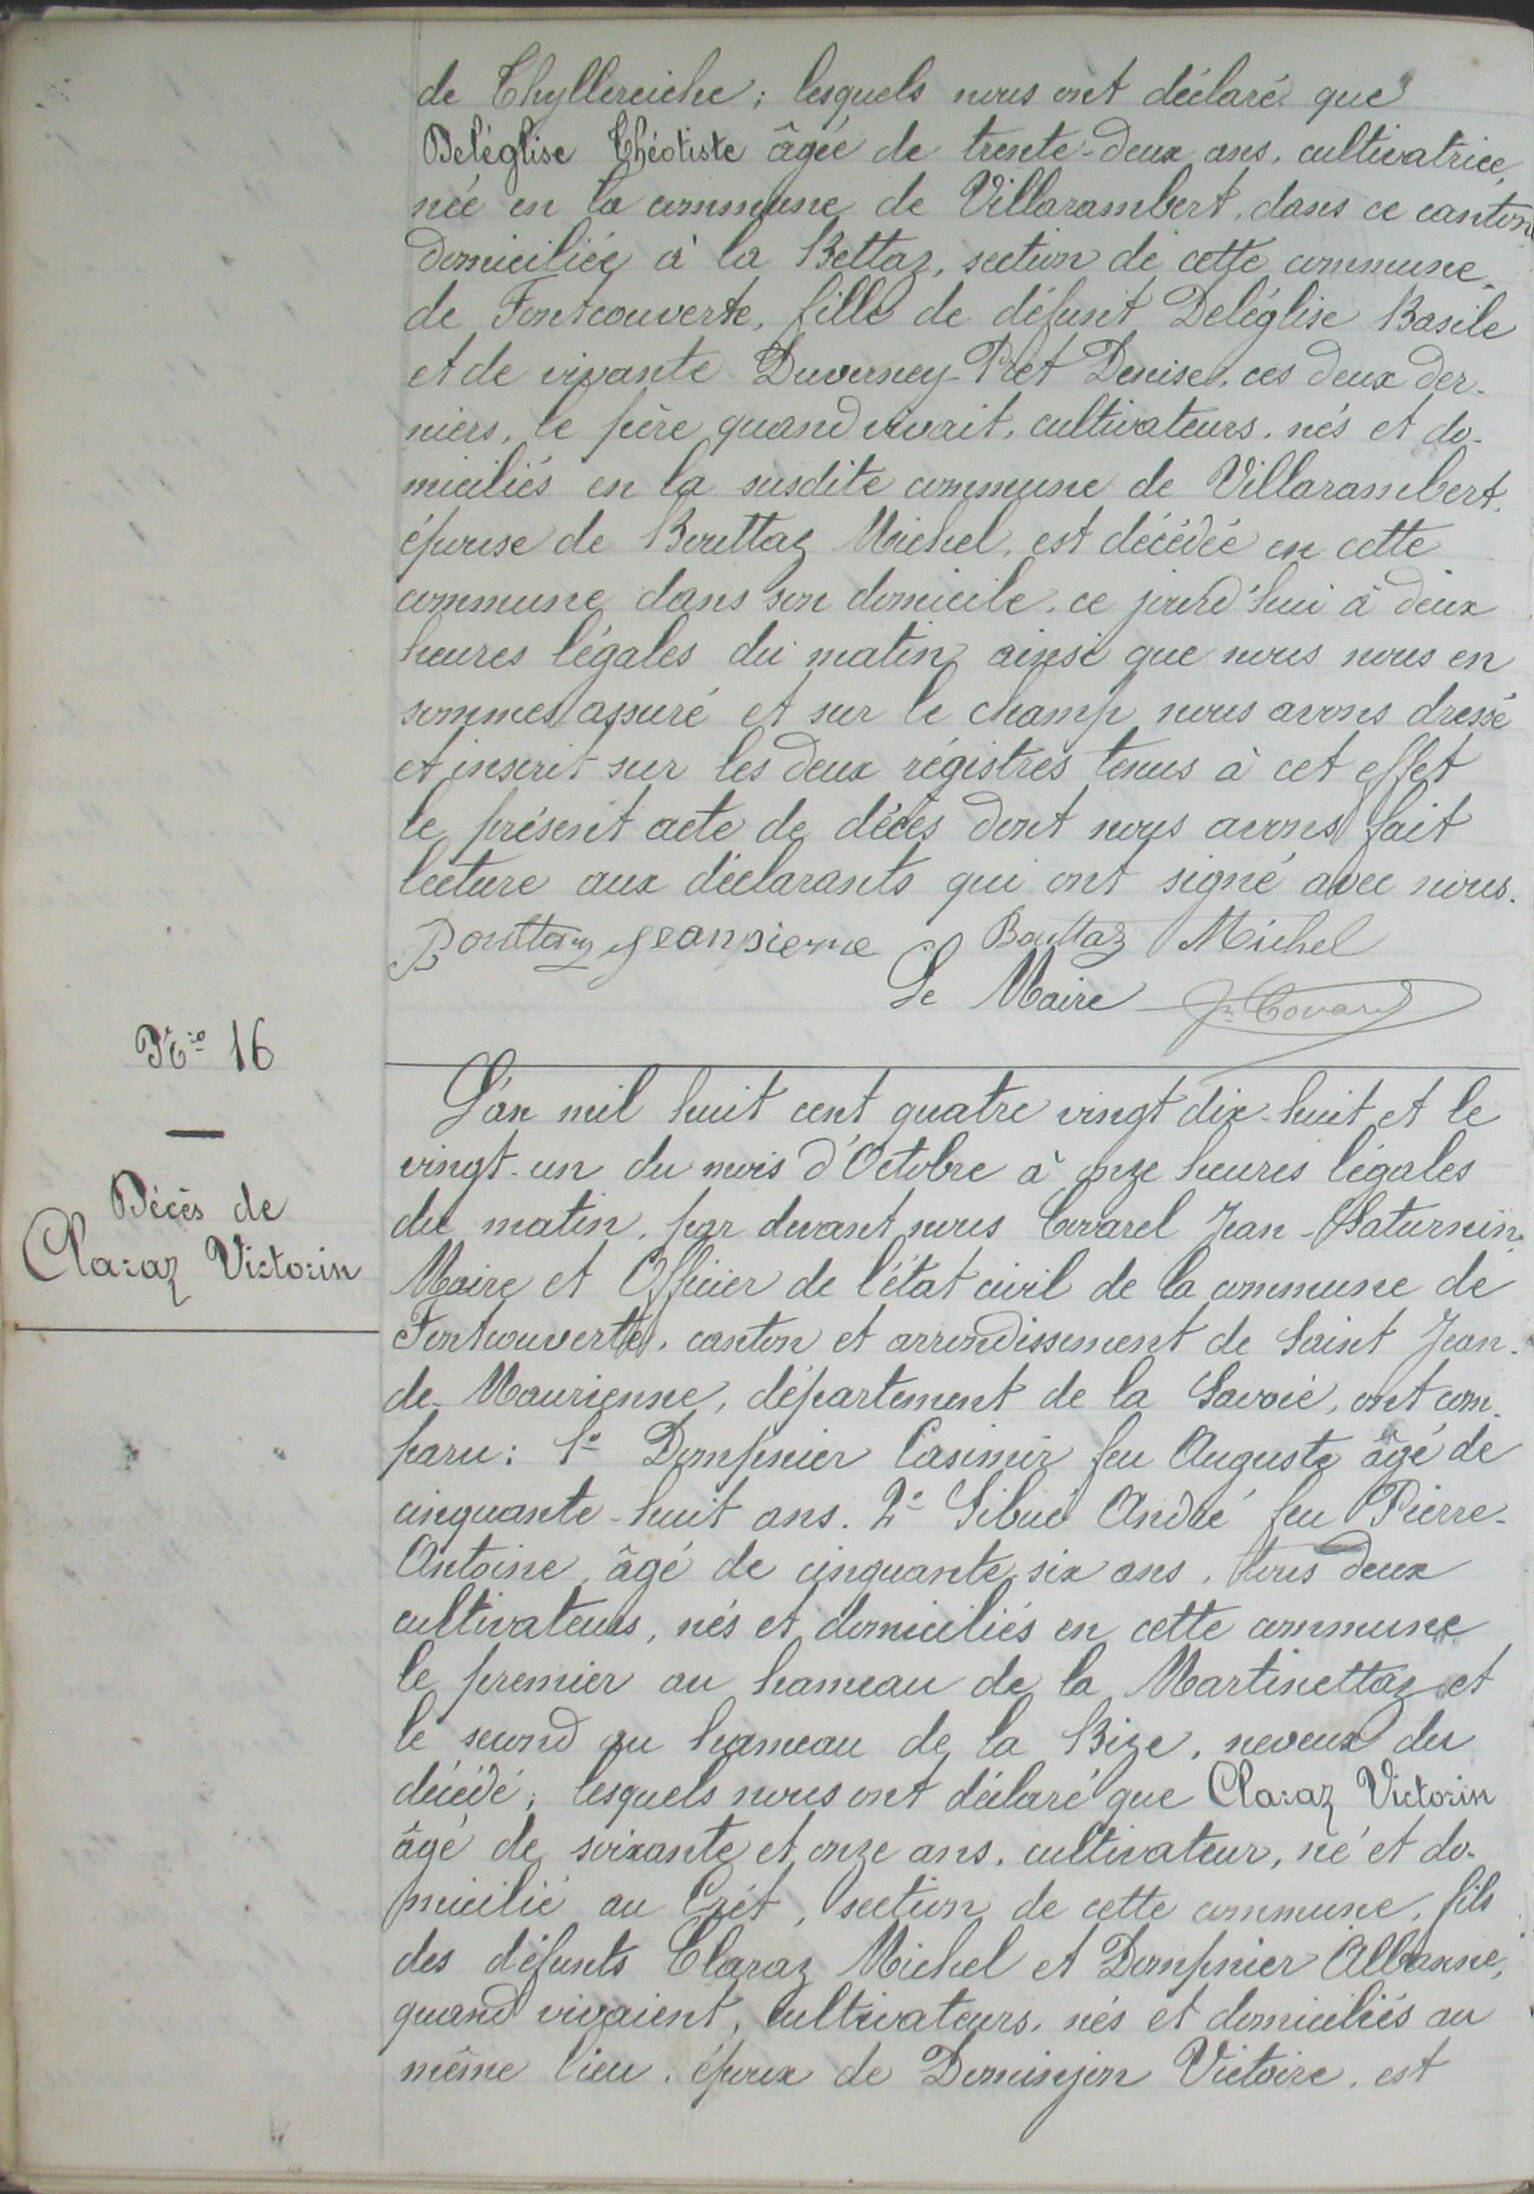 de Thyllereiche ; lesquels nous ont déclaré que
Deléglise Théotiste âgée de trente-deux ans, cultivatrice,
née en la commune de Villarambert, dans ce canton
domiciliée à la Bettaz, section de cette commune
de Fontcouverte, fille de défunt Deléglise Basile
et de vivante Duverney-Prêt Denise, ces deux der-
niers, le père quand vivait, cultivateurs, nés et do-
miciliés en la susdite commune de Villarambert,
épouse de Bouttaz Michel, est décédée en cette
commune dans son domicile, ce jourd'hui à deux
heures légales du matin ainsi que nous nous en
sommes assuré et sur le champ nous avons dressé
et inscrit sur les deux régistres tenus à cet effet
le présent acte de décès dont nous avons fait
lecture aux déclarants qui ont signé avec nous.
Bouttaz jeanpierre Bouttaz Michel
Le Maire Covarel
Nro 16
Décès de
Claraz Victorin
L'an mil huit cent quatre vingt dix-huit et le
vingt-un du mois d'Octobre à onze heures légales
du matin, par devant nous Covarel Jean-Saturnin
Maire et Officier de l'état civil de la commune de
Fontcouverte, canton et arrondissement de Saint Jean-
de-Maurienne, département de la Savoie, ont com-
paru : 1° Dompnier Casimir feu Auguste âgé de
cinquante-huit ans. 2° Sibué André feu Pierre-
Antoine, âgé de cinquante six ans, tous deux
cultivateurs, nés et domiciliés en cette commune
le premier au hameau de la Martinettaz et
le second au hameau de la Bize, neveux du
décédé ; lesquels nous ont déclaré que Claraz Victorin
âgé de soixante et onze ans, cultivateur, né et do-
micilié au Crêt, section de cette commune, fils
des défunts Claraz Michel et Dompnier Albanne,
quand vivaient, cultivateurs, nés et domiciliés au
même lieu, époux de Dominjon Victoire, est